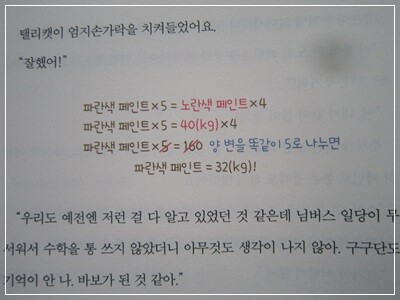 탤리캣이 엄지손가락을 치켜들었어요.
“잘했어!”
파란색 페인트×5 = 노란색 페인트×4
파란색 페인트×5 = 40(kg)×4
파란색 페인트×5 = 160 양 변을 똑같이 5로 나누면
파란색 페인트 = 32(kg)!
“우리도 예전엔 저런 걸 다 알고 있었던 것 같은데 님버스 일당이 무
서워서 수학을 통 쓰지 않았더니 아무것도 생각이 나지 않아. 구구단도
기억이 안 나. 바보가 된 것 같아.”